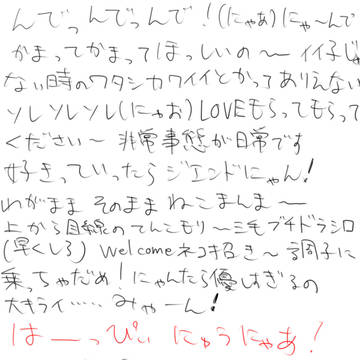 んでっんでっんで！(にゃあ)にゃ〜んで
かまってかまってほしいの〜イイ子じゃ
ない時のワタシカワイイとかってありえない
ソレソレソレ(にゃお)LOVEもらってもらって
ください〜 非常事態が日常です
好きっていったらジエンドにゃん!
わがまま そのまま ねこまんま〜
上から目線のてんこもり〜三毛ブチドラシロ
(早くしろ) Welcomeネコ招き〜調子に
乗っちゃだめ!にゃんたら優しすぎるの
大キライ……みゃーん!
はーっぴぃ にゅうにゃあ!